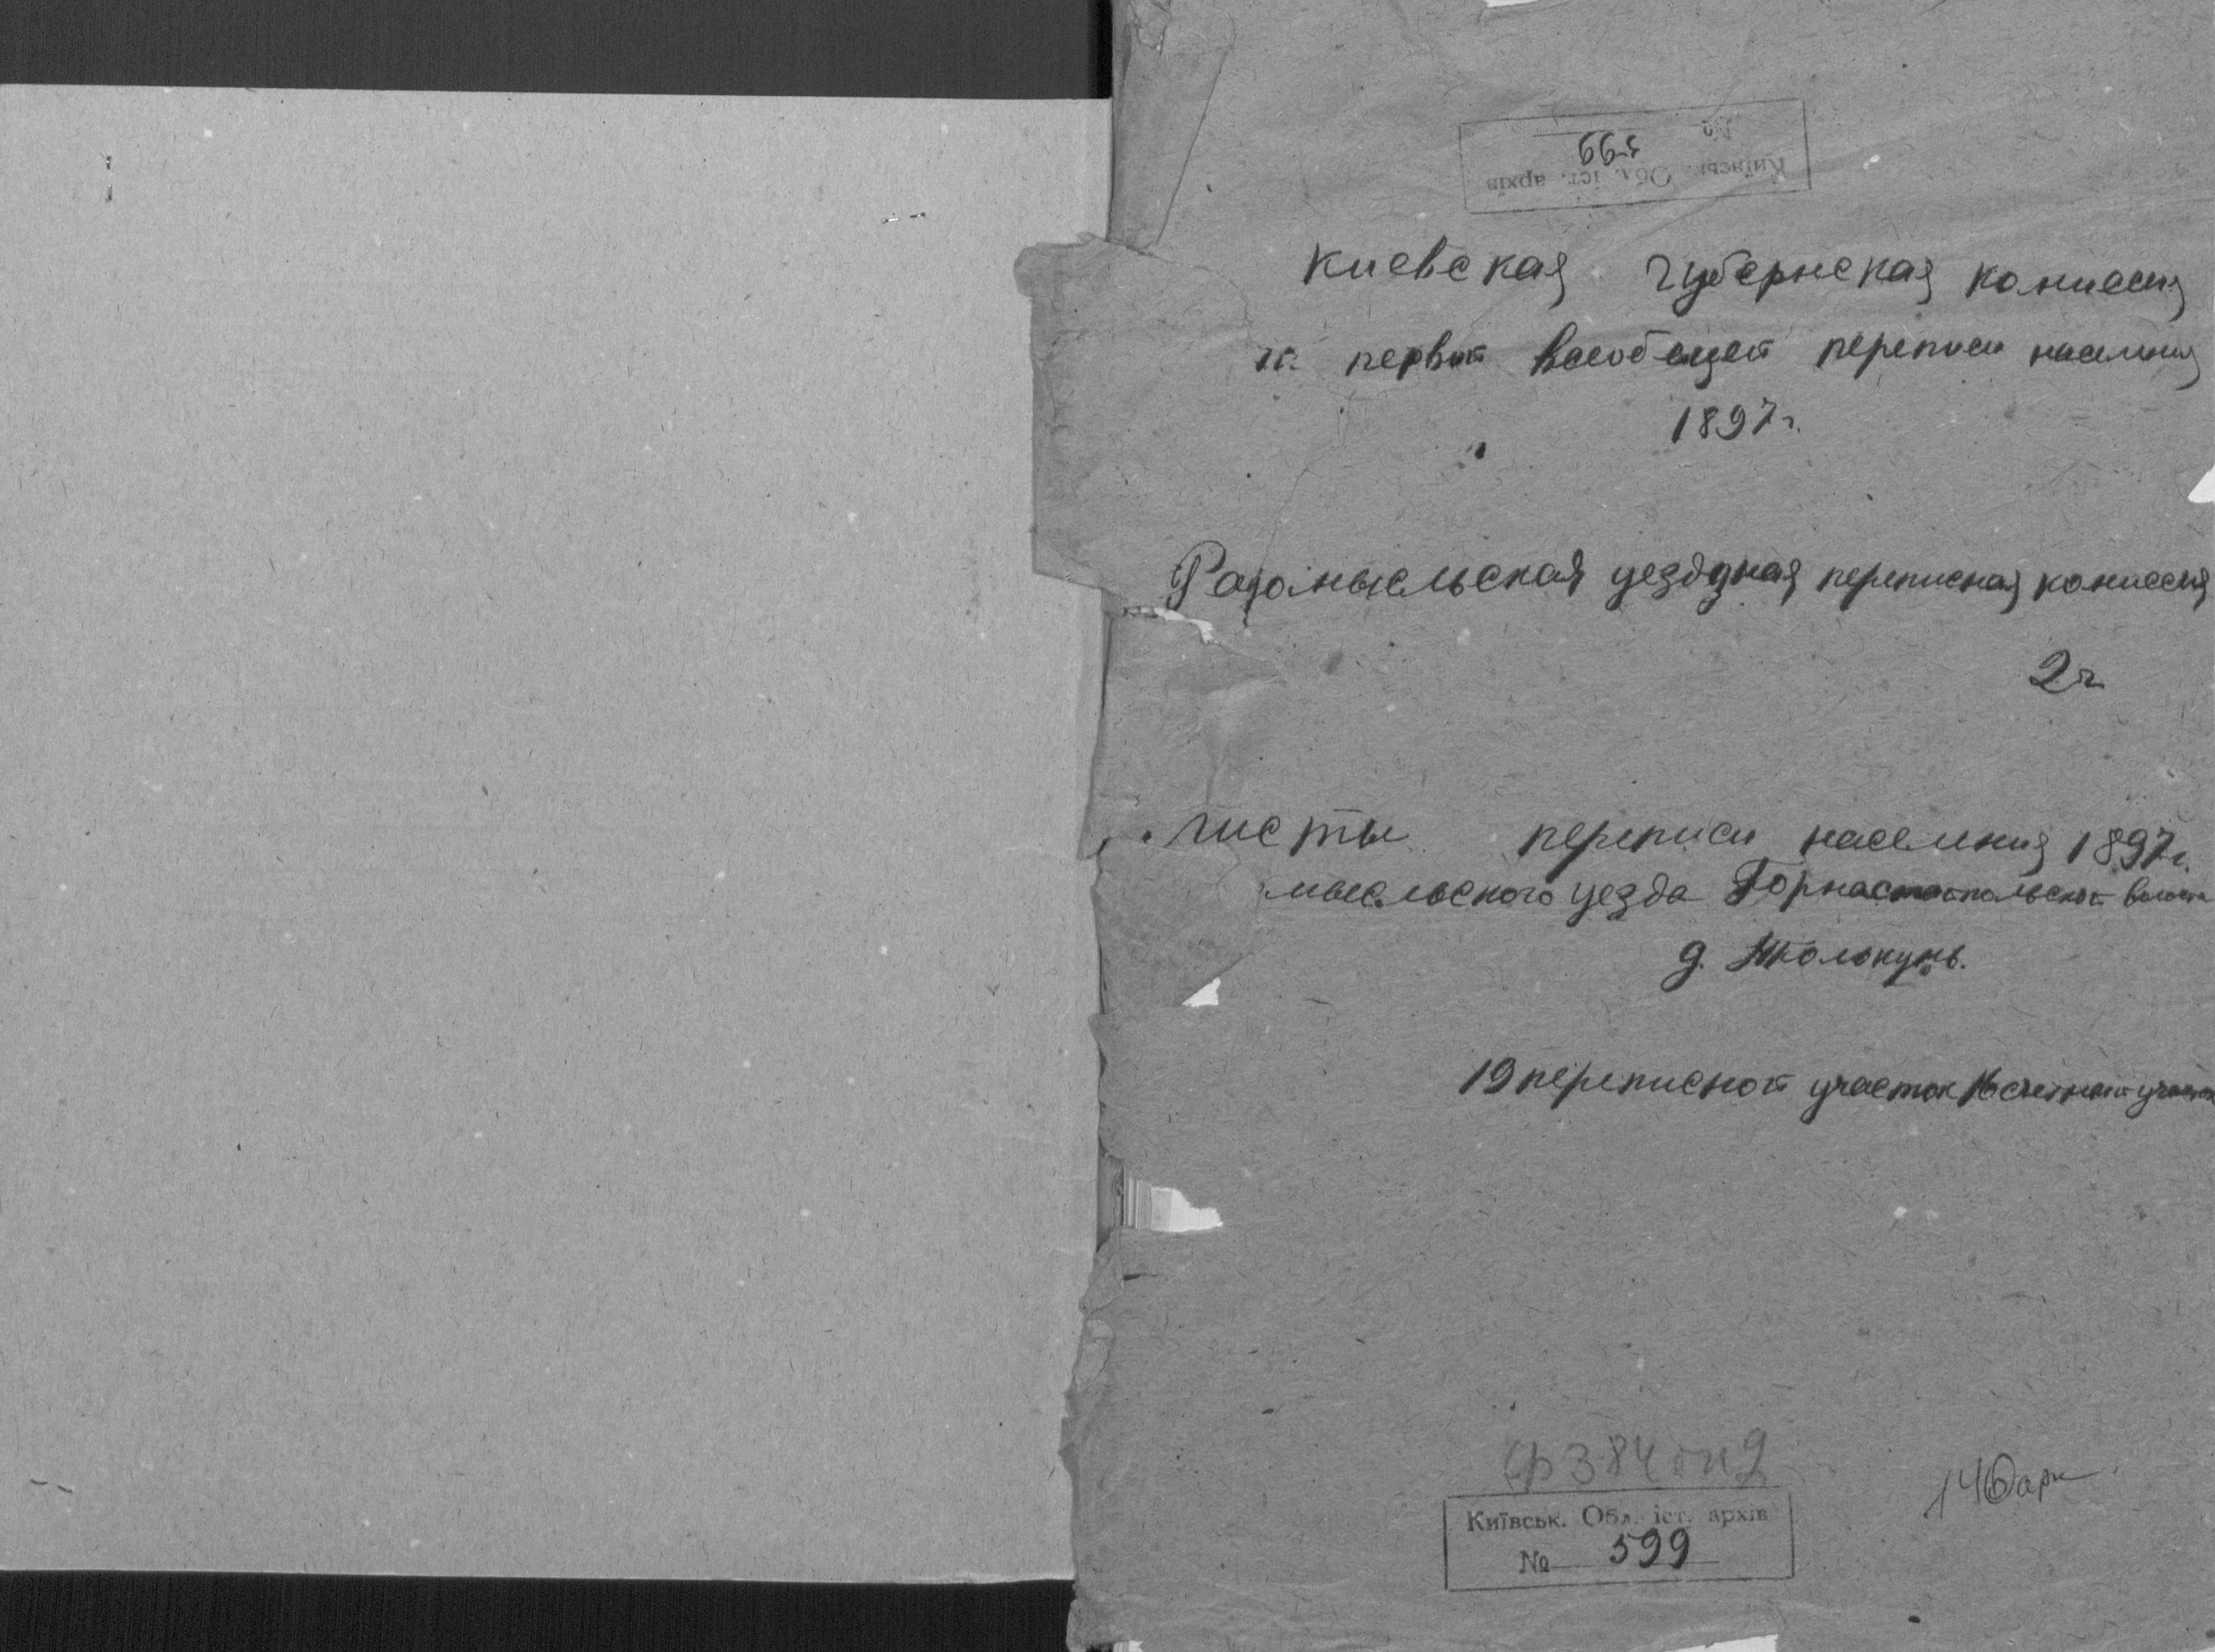 Київськ. Обл. іст. архів
№ 599
Киевская губернская комиссия
первой всеобщей переписи населения
1897 г.
Радомысльская уездная переписная комиссия
2 г
Листы переписи населения 1897 г.
мысльского уезда Горностайпольской волости
д. Толокунь.
19 переписной участок 16 счетный участок
Ф 384 оп 9
146 арк
Київськ. Обл. іст. архів
№ 599